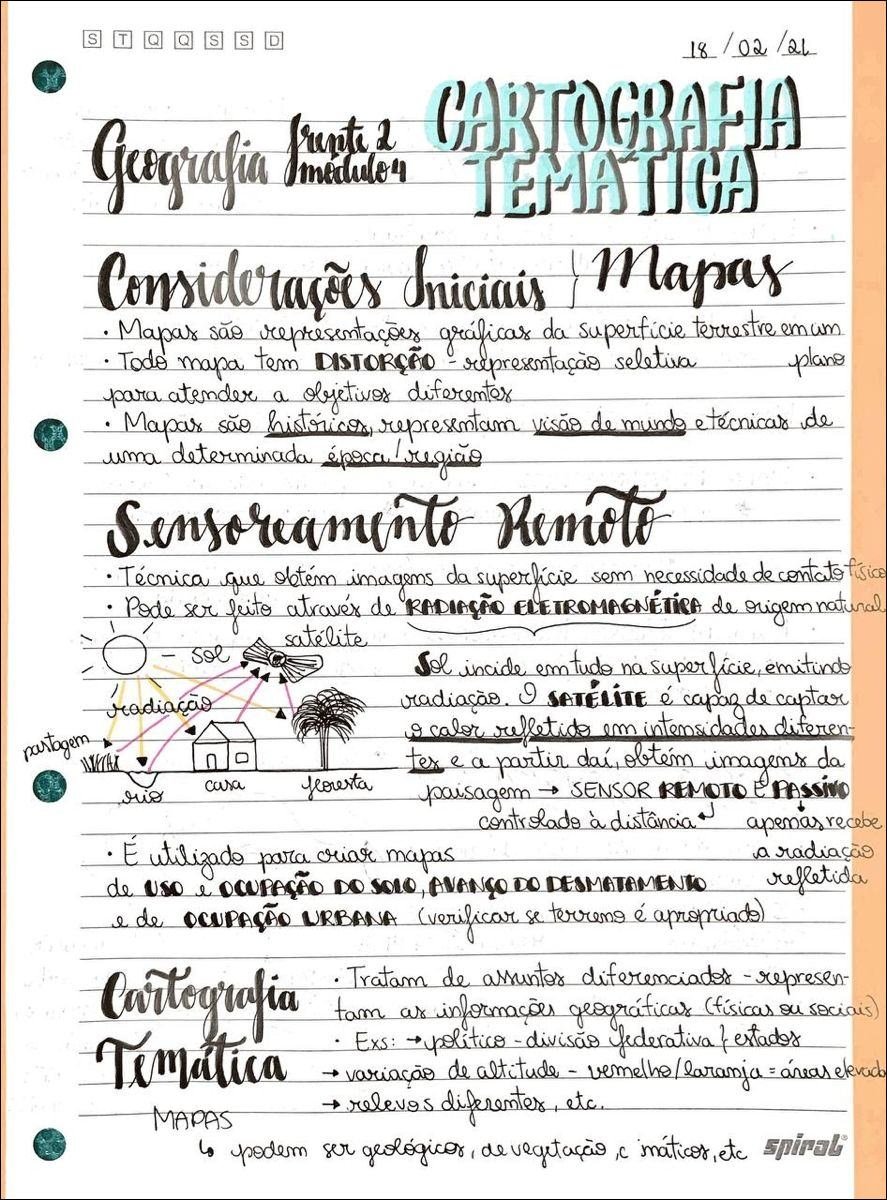 S T Q Q S S D
18/02/21
Geografia frente 2 módulo 4
CARTOGRAFIA
TEMÁTICA
Considerações Iniciais } Mapas
· Mapas são representações gráficas da superfície terrestre em um plano
· Todo mapa tem DISTORÇÃO - representação seletiva
para atender a objetivos diferentes
· Mapas são históricos, representam visão de mundo e técnicas de
uma determinada época/região
Sensoreamento Remoto
· Técnica que obtém imagens da superfície sem necessidade de contato físico
· Pode ser feito através de RADIAÇÃO ELETROMAGNÉTICA de origem natural
- sol
satélite
radiação
pastagem
rio
casa
floresta
Sol incide em tudo na superfície, emitindo
radiação. O SATÉLITE é capaz de captar
o calor refletido em intensidades diferen-
tes e a partir daí, obtém imagens da
paisagem → SENSOR REMOTO E PASSIVO
controlado à distância
apenas recebe
a radiação
refletida
· É utilizado para criar mapas
de USO e OCUPAÇÃO DO SOLO, AVANÇO DO DESMATAMENTO
e de OCUPAÇÃO URBANA (verificar se terreno é apropriado)
Cartografia
Temática
MAPAS
· Tratam de assuntos diferenciados - represen-
tam as informações geográficas (físicas ou sociais)
· Exs: → político - divisão federativa / estados
→ variação de altitude - vermelho/laranja = áreas elevada
→ relevos diferentes, etc.
↳ podem ser geológicos, de vegetação, c máticos, etc
spiral®